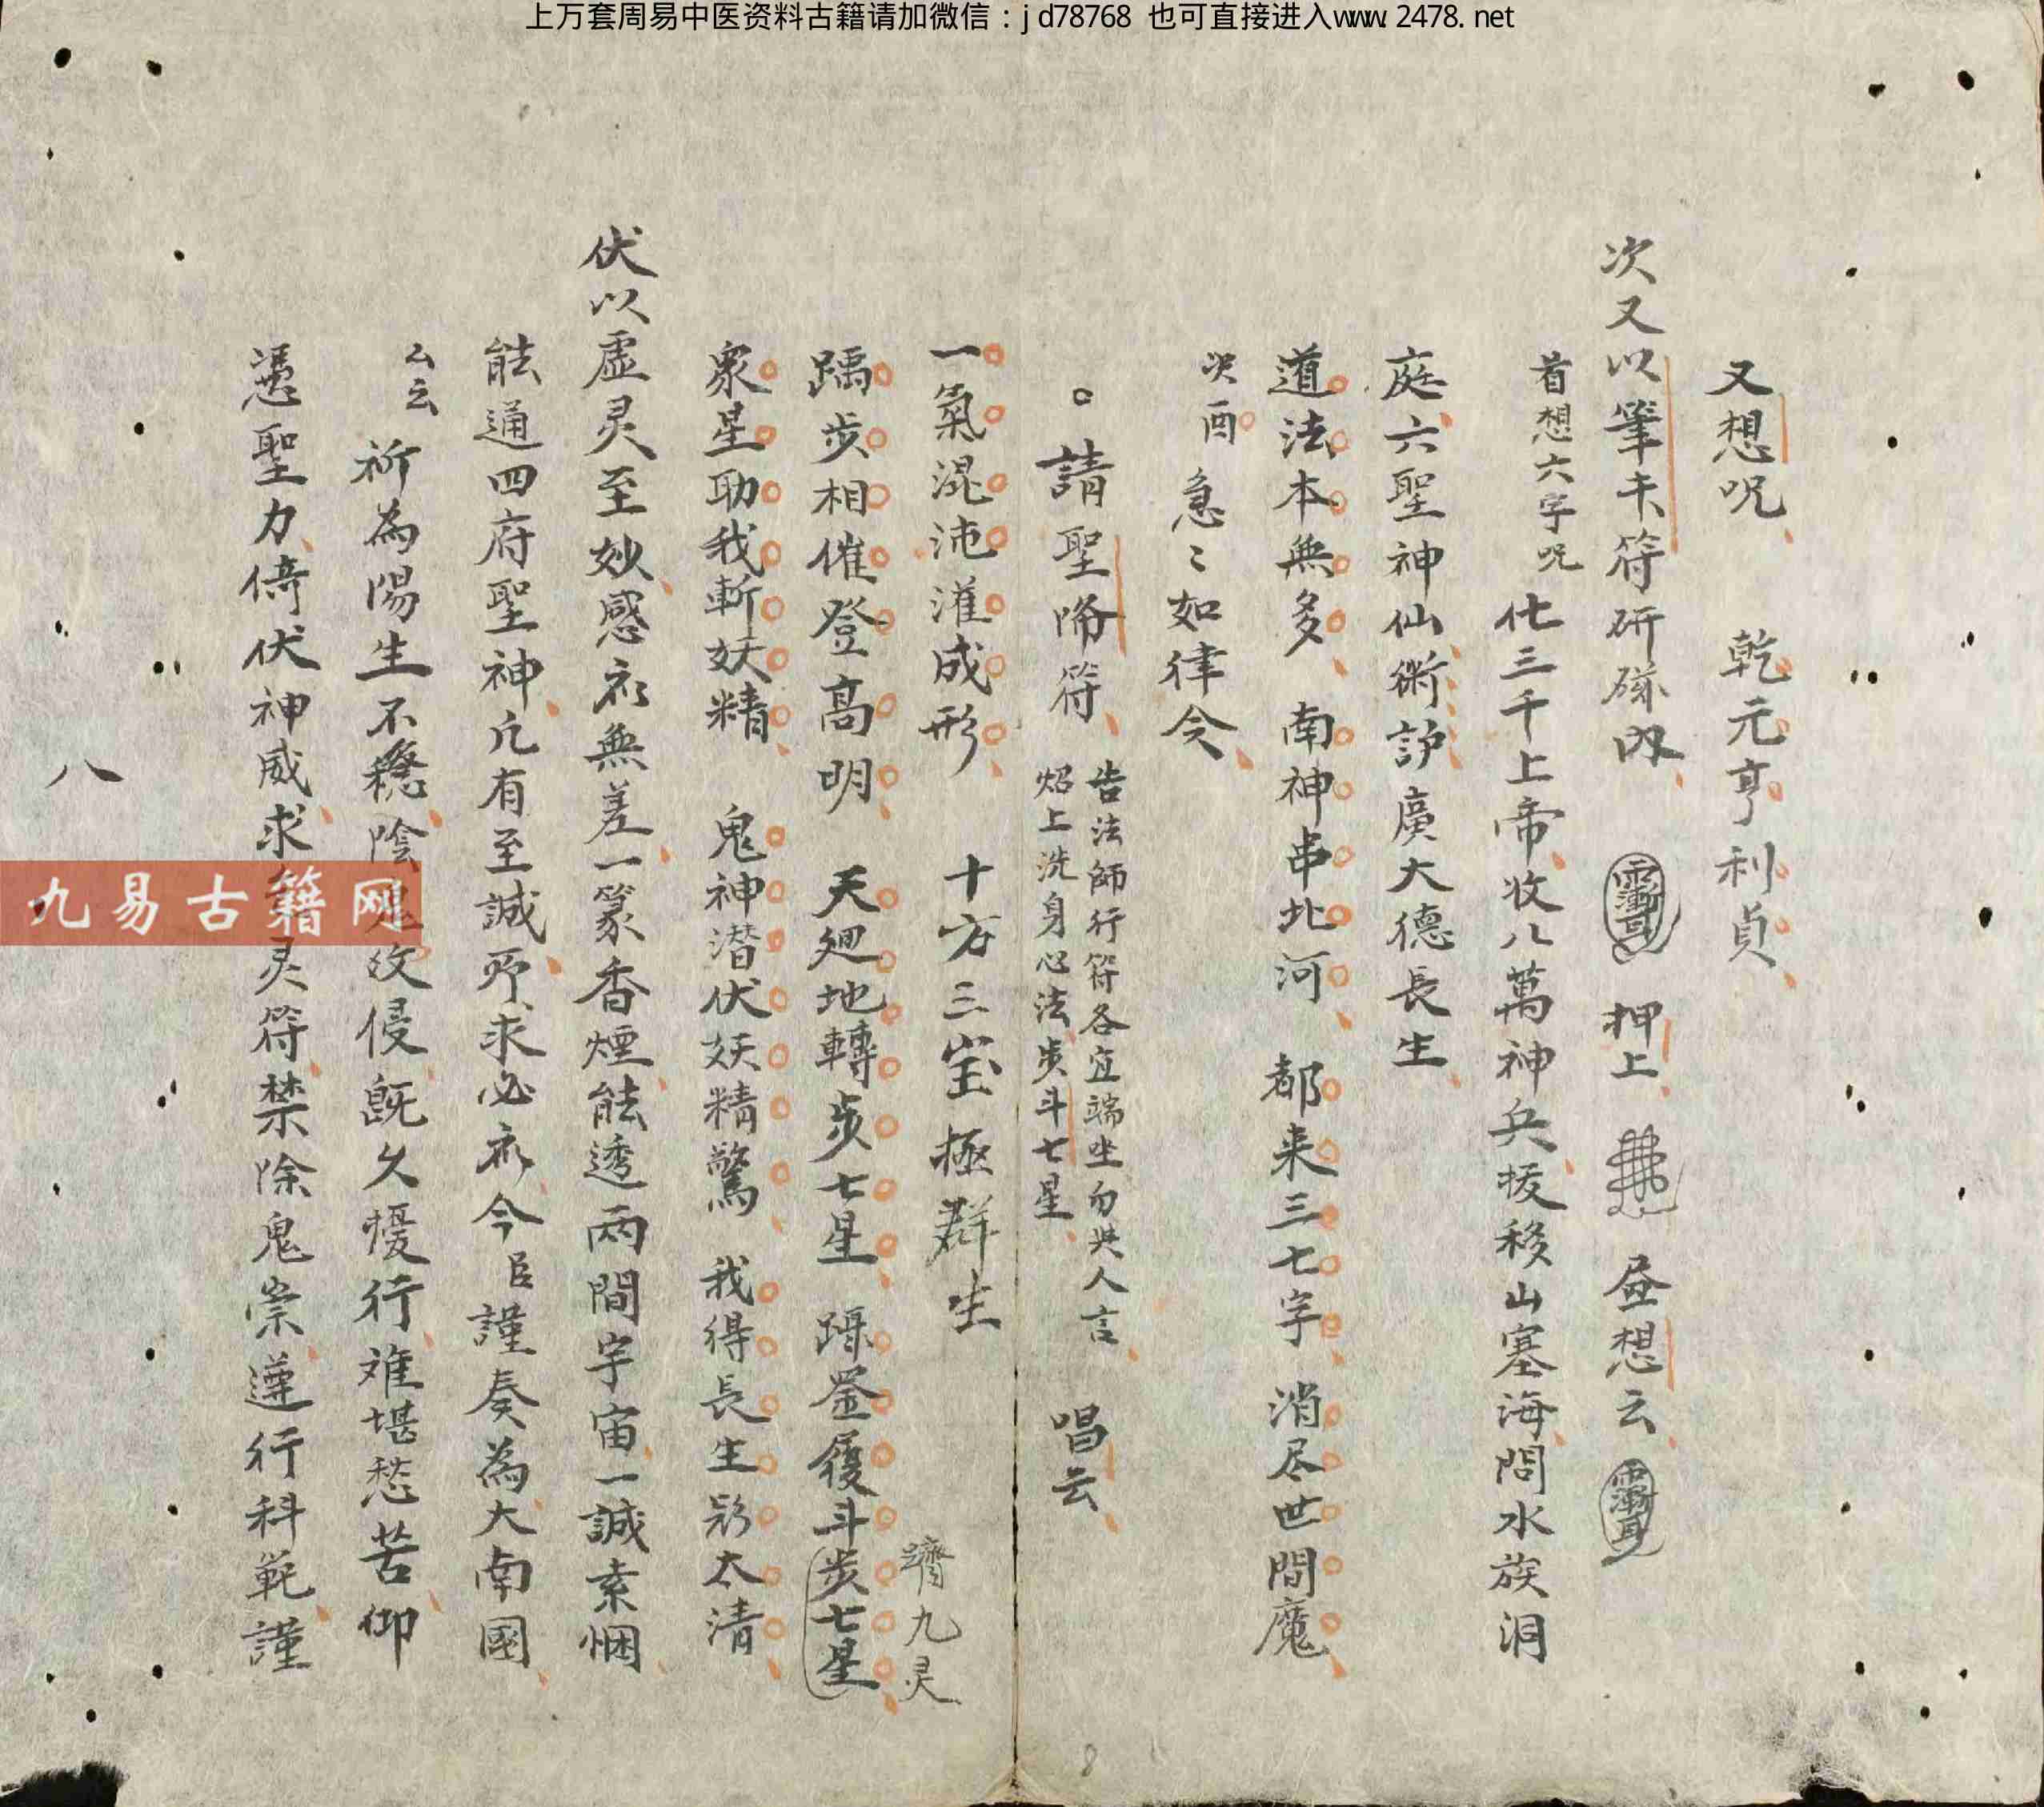 上万套周易中医资料古籍请加微信：jd78768 也可直接进入www.2478.net
又想呪 乾元亨利貞
次又以筆卡符研硃內 押上 昼想云
首想六字呪 化三千上帝收八萬神兵拔移山塞海問水族洞
庭六聖神仙術訃廣大德長生
道法本無多 南神串北河 都来三七字 消尽世間魔
次酉 急〻如律令
請聖啼符 告法師行符各宜端坐勿共人言
炤上洗身心法步斗七星 唱云
一氣混沌灌成形 十方三宝極群生
躋九灵
踽步相催登高明 天廻地轉步七星 躡罡履斗步七星
衆星助我斬妖精 鬼神潜伏妖精驚 我得長生朌太清
伏以虛灵至妙感礽無差一篆香煙能透兩間宇宙一誠素悃
能通四府聖神凡有至誠所求必礽今臣謹奏為大南國
厶云 祈為陽生不穏陰鬼改侵既久擾行难堪愁苦仰
憑聖力倚伏神威求灵符禁除鬼祟遵行科範謹
八
九易古籍网
8